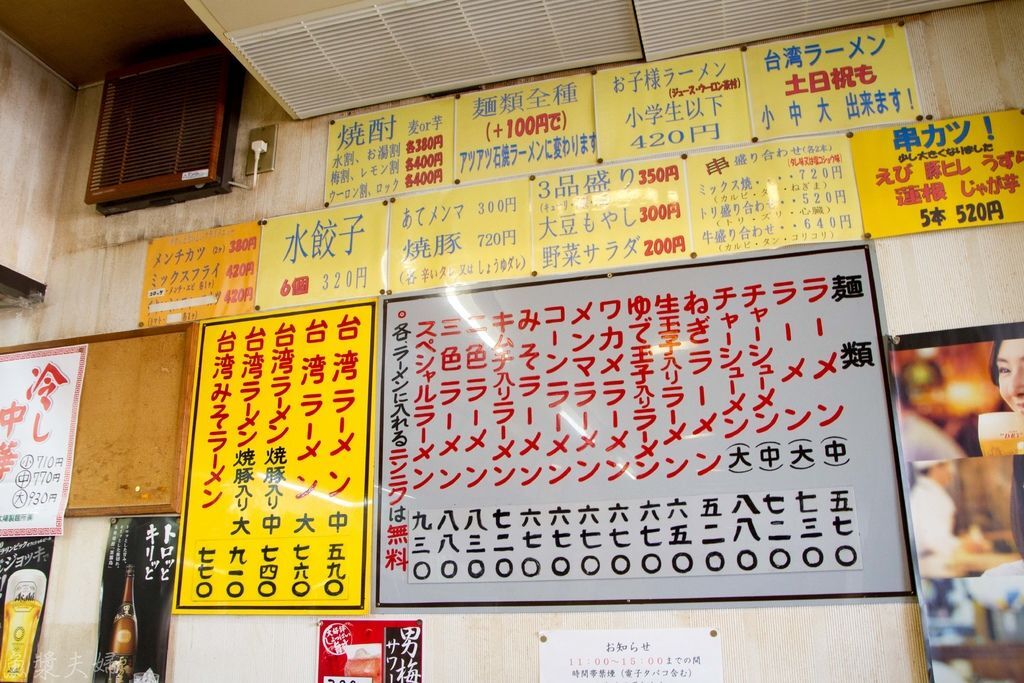 焼酎 麦or芋
水割、お湯割 各380円
梅割、レモン割 各400円
ウーロン割、ロック 各400円
麺類全種
(+100円で)
アツアツ石焼ラーメンに変わります
お子様ラーメン
(ジュース・ウーロン茶付)
小学生以下
420円
台湾ラーメン
土日祝も
小 中 大 出来ます!
メンチカツ(2ケ) 380円
ミックスフライ 420円
420円
水餃子
6個 320円
あてメンマ 300円
焼豚 720円
(各 辛いタレ 又は しょうゆダレ)
3品盛り 350円
大豆もやし 300円
野菜サラダ 200円
串 盛り合わせ(各2本)
ミックス焼・・・720円
(カルビ・タン・ねぎま)
トリ盛り合わせ・・520円
(トリ・ズリ・心臓)
牛盛り合わせ・・640円
(カルビ・タン・コリコリ)
串カツ!
少し大きくなりました
えび 豚ヒレ うずら
蓮根 じゃが芋
5本 520円
麺類
ラーメン(中) 五七〇
ラーメン(大) 七三〇
チャーシューメン(中) 七七〇
チャーシューメン(大) 八八〇
ねぎラーメン 五二〇
生玉子入りラーメン 六五〇
ゆで玉子入りラーメン 六六〇
ワカメラーメン 六六〇
メンマラーメン 六六〇
コーンラーメン 六六〇
みそラーメン 六六〇
キムチ入りラーメン 七二〇
二色ラーメン 八三〇
三色ラーメン 八八〇
スペシャルラーメン 九三〇
。各ラーメンに入れるニンニクは無料
台湾ラーメン 中 五九〇
台湾ラーメン 大 七六〇
台湾ラーメン 焼豚入り 中 七四〇
台湾ラーメン 焼豚入り 大 九一〇
台湾みそラーメン 七七〇
冷し中華
小 710円
中 770円
大 930円
トロッと
キリッと
男梅
サワー
お知らせ
11:00~15:00までの間
時間帯禁煙(電子タバコ含む)